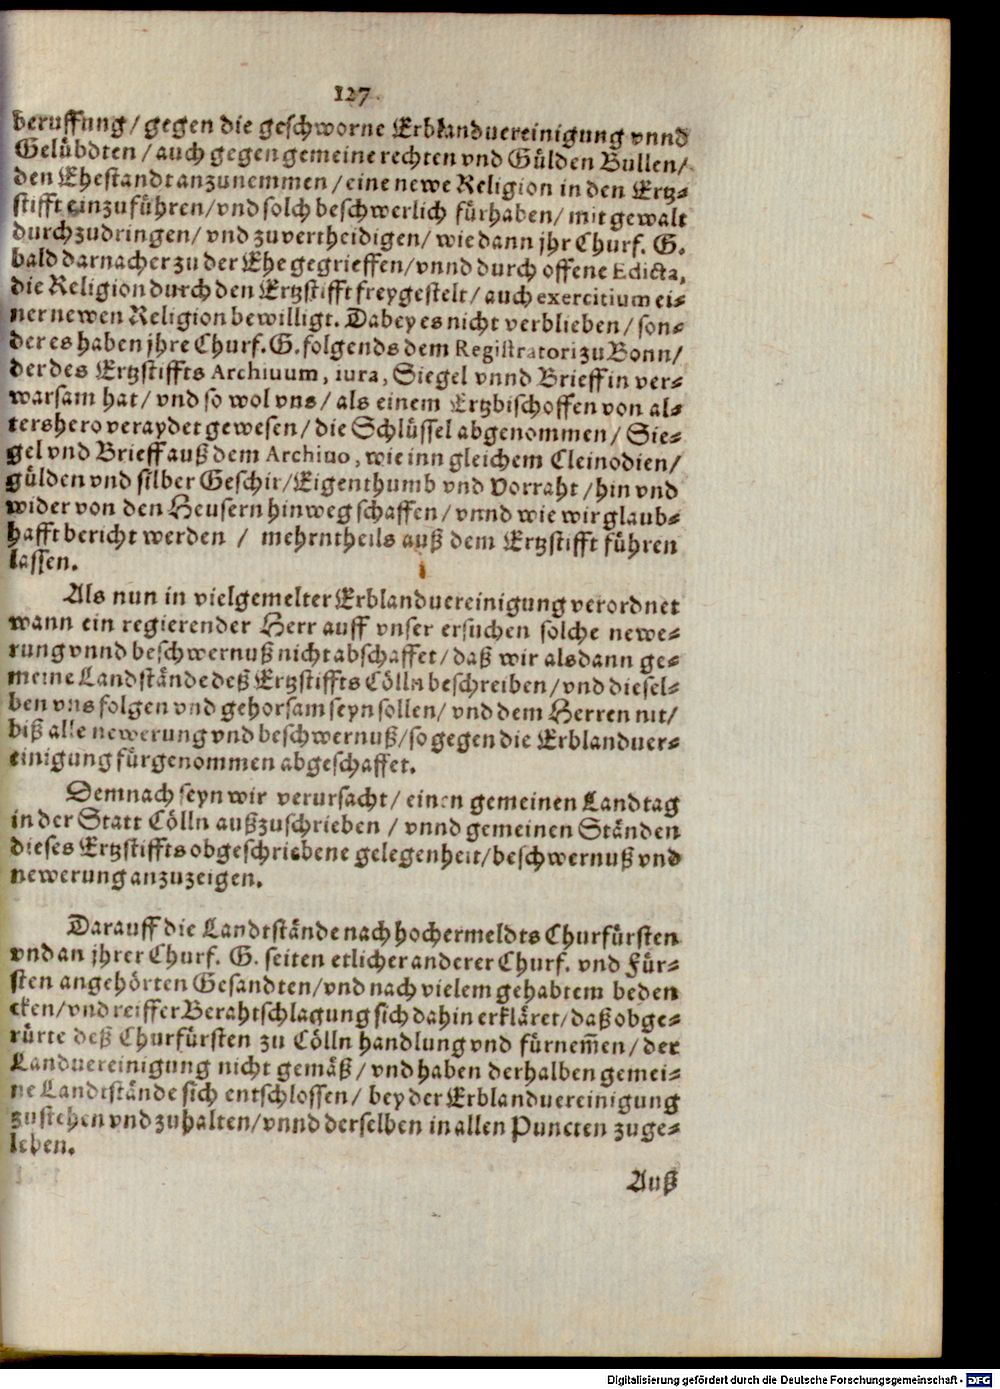 127.
beruffung/gegen die geschworne Erblanduereinigung vnnd
Gelübdten/auch gegen gemeine rechten vnd Gülden Bullen/
den Ehestandt anzunemmen/eine newe Religion in den Ertz-
stifft einzuführen/vnd solch beschwerlich fürhaben/mit gewalt
durchzudringen/vnd zuvertheidigen/wie dann jhr Churf. G.
bald darnacher zu der Ehe gegrieffen/vnnd durch offene Edicta,
die Religion durch den Ertzstifft freygestelt/auch exercitium ei-
ner newen Religion bewilligt. Dabey es nicht verblieben/son-
der es haben jhre Churf. G. folgends dem Registratori zu Bonn/
der des Ertzstiffts Archiuum, iura, Siegel vnnd Brieff in ver-
warsam hat/vnd so wol vns/als einem Ertzbischoffen von al-
tershero veraydet gewesen/die Schlüssel abgenommen/Sie-
gel vnd Brieff auß dem Archiuo, wie inn gleichem Cleinodien/
gülden vnd silber Geschir/Eigenthumb vnd Vorraht/hin vnd
wider von den Heusern hinweg schaffen/vnnd wie wir glaub-
hafft bericht werden / mehrntheils auß dem Ertzstifft führen
lassen.
Als nun in vielgemelter Erblanduereinigung verordnet
wann ein regierender Herr auff vnser ersuchen solche newe-
rung vnnd beschwernuß nicht abschaffet/daß wir alsdann ge-
meine Landstände deß Ertzstiffts Cölln beschreiben/vnd diesel-
ben vns folgen vnd gehorsam seyn sollen/vnd dem Herren nit/
biß alle newerung vnd beschwernuß/so gegen die Erblanduer-
einigung fürgenommen abgeschaffet.
Demnach seyn wir verursacht/einen gemeinen Landtag
in der Statt Cölln außzuschrieben/vnnd gemeinen Ständen
dieses Ertzstiffts obgeschriebene gelegenheit/beschwernuß vnd
newerung anzuzeigen.
Darauff die Landtstände nach hochermeldts Churfürsten
vnd an jhrer Churf. G. seiten etlicher anderer Churf. vnd Für-
sten angehörten Gesandten/vnd nach vielem gehabtem beden
cken/vnd reiffer Berahtschlagung sich dahin erkläret/daß obge-
rürte deß Churfürsten zu Cölln handlung vnd fürnem̄en/der
Landuereinigung nicht gemäß/vnd haben derhalben gemei-
ne Landtstände sich entschlossen/bey der Erblanduereinigung
zustehen vnd zuhalten/vnnd derselben in allen Puncten zuge-
leben.
Auß
Digitalisierung gefördert durch die Deutsche Forschungsgemeinschaft - DFG